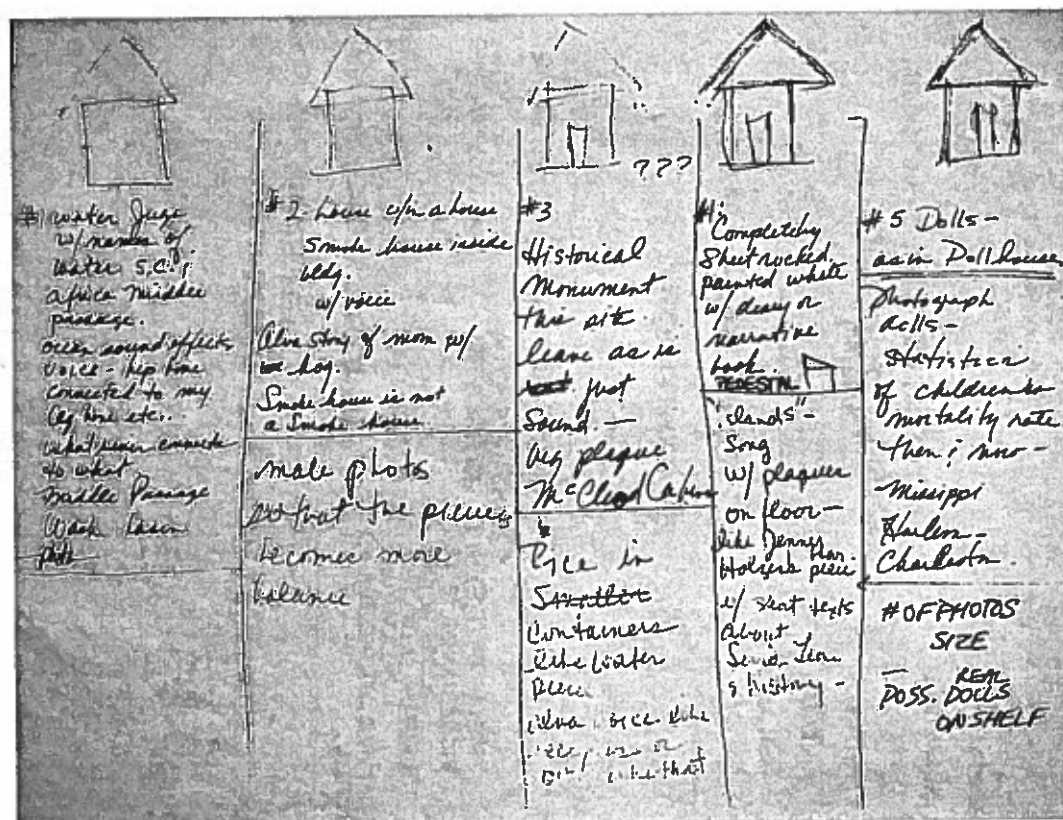 ???
#1 water Jugs
w/names of
water S.C. &
africa middle
passage.
ocean sound effects
voice - hip bone
connected to my
leg bone etc..
what river connects
to what
Middle Passage
Wash basin
#2 - house w/in a house
Smoke house inside
bldg.
w/ voice
Alva Story of mom w/
hog.
Smoke house is not
a Smoke house.
male photos
so that the piece
becomes more
balance
#3
Historical
Monument
this site
leave as is
just
Sound. -
big plaque
McCleod Cabin
Rice in
Smaller
Containers
like water
piece
Alva
Completely
Sheetrocked.
painted white
w/ diary or
narrative
book.
PEDESTAL
"islands" -
Song
w/ plaques
on floor -
like Jenny
Holzer's piece
w/ text
About
& history -
#5 Dolls -
as in Dollhouse
photograph
dolls -
Statistics
of childrens
mortality rate
then & now -
Missippi
Harlem -
Charleston.
# OF PHOTOS
SIZE
— REAL
POSS. DOLLS
ON SHELF